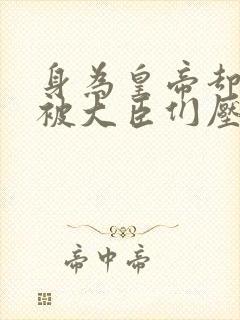 身為皇帝却
被大臣们壓
帝中帝